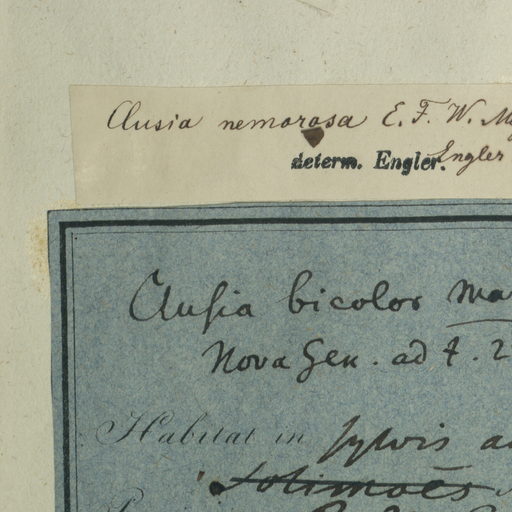 Clusia nemorosa E. F. W. Me
determ. Engler. Engler
Clusia bicolor Mar
Nova Gen. ad t. 2
Habitat in sylvis
Solimoës